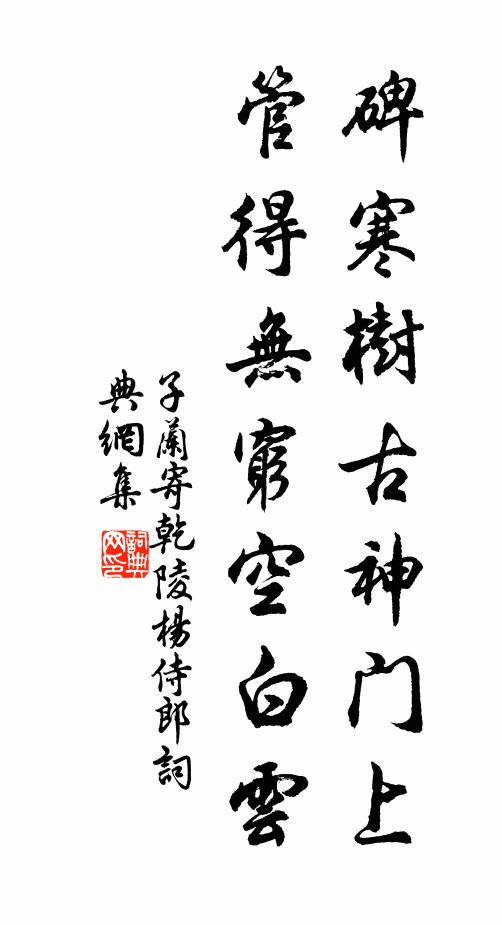 碑寒樹古神門上
管得無窮空白雲
子蘭寄乾陵楊侍郎詞
典網集
詞典网印